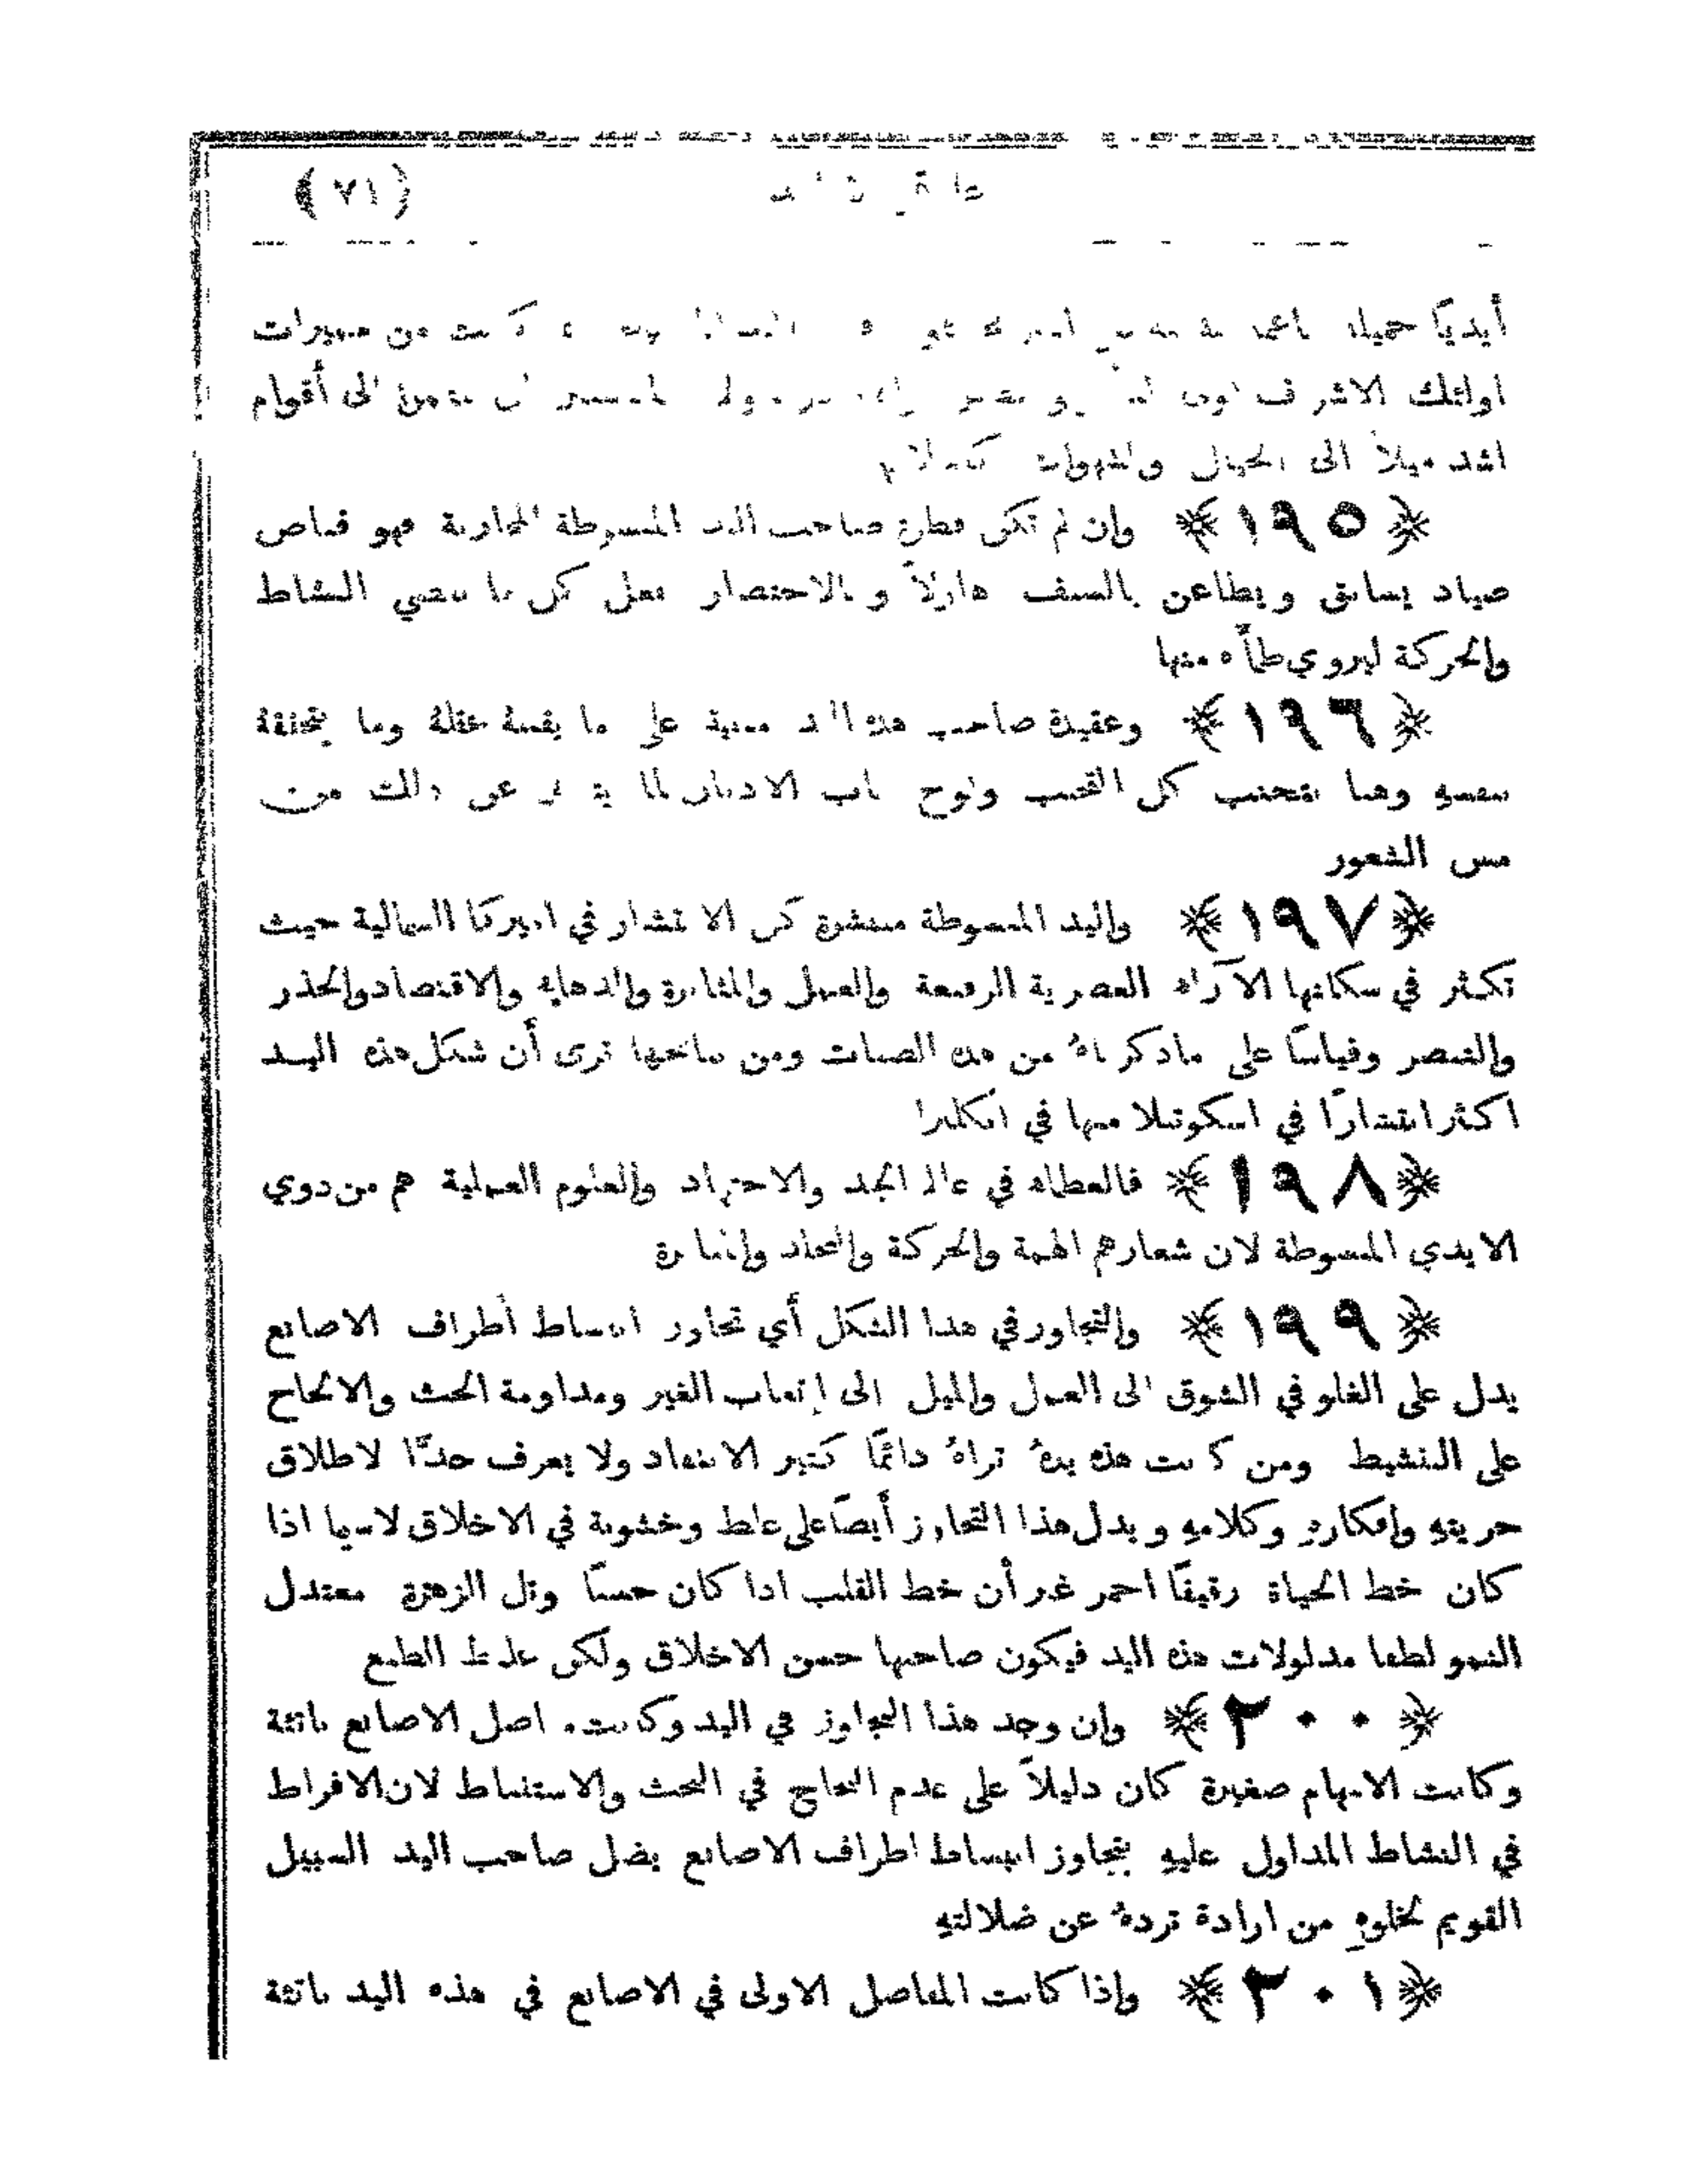 (٧١)
أيديًا جميلة من مميزات
اولئك الاشراف الى أقوام
اشد ميلاً الى الخيال والشهوات
﴿١٩٥﴾ وإن لم تكن فطرة صاحب اليد المبسوطة المحاربة فهو قناص
صياد يسابق ويطاعن بالسيف هازلاً وبالاختصار يفعل كل ما يقتضي النشاط
والحركة ليروي ظمأه منها
﴿١٩٦﴾ وعقيدة صاحب هذه اليد مبنية على ما يقبله عقله وما يتحققه
بنفسه وهنا يتجنب كل التجنب ولوج باب الاديان لما عن ذلك من
مس الشعور
﴿١٩٧﴾ واليد المبسوطة منتشرة كل الانتشار في اميركا الشمالية حيث
تكثر في سكانها الآراء العصرية الرفيعة والعمل والمثابرة والدهاء والاقتصاد والحذر
والتبصر وقياسًا على ما ذكرناهُ من هذه الصفات ومن صاحبها ترى أن شكل هذه اليد
اكثر انتشارًا في اسكوتلا منها في انكلترا
﴿١٩٨﴾ فالعظماء في عالم الجد والاجتهاد والعلوم العملية هم من ذوي
الايدي المبسوطة لان شعارهم الهمة والحركة والجلد والمثابرة
﴿١٩٩﴾ والتجاوز في هذا الشكل أي تجاوز انبساط أطراف الاصابع
يدل على الغلو في الشوق الى العمل والميل الى إتعاب الغير ومداومة الحث والالحاح
على التنشيط ومن كانت هذه يدهُ تراهُ دائمًا كثير الانتقاد ولا يعرف حدًّا لاطلاق
حريته وافكاره وكلامه ويدل هذا التجاوز أيضًا على غلظ وخشونة في الاخلاق لاسيما اذا
كان خط الحياة رقيقًا احمر غير أن خط القلب اذا كان حسنًا وتل الزهرة معتدل
النمو لطفا مدلولات هذه اليد فيكون صاحبها حسن الاخلاق ولكن غليظ الطبع
﴿٢٠٠﴾ وإن وجد هذا التجاوز في اليد وكانت اصل الاصابع ناتئة
وكانت الابهام صغيرة كان دليلاً على عدم النجاح في البحث والاستنباط لان الافراط
في النشاط المداول عليه بتجاوز انبساط اطراف الاصابع يضل صاحب اليد السبيل
القويم لخلوهِ من ارادة تردهُ عن ضلالته
﴿٢٠١﴾ وإذا كانت المفاصل الاولى في الاصابع في هذه اليد ناتئة